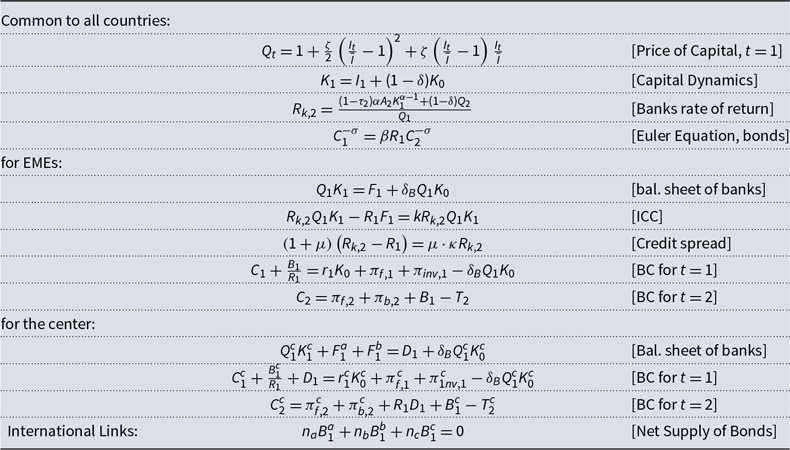 Common to all countries:
Q_t = 1 + \frac{ζ}{2} \left( \frac{I_t}{\bar{I}} - 1 \right)^2 + ζ \left( \frac{I_t}{\bar{I}} - 1 \right) \frac{I_t}{\bar{I}} [Price of Capital, t = 1]
K_1 = I_1 + (1 − δ)K_0 [Capital Dynamics]
R_{k,2} = \frac{(1−τ_2)αA_2K_1^{α−1}+(1−δ)Q_2}{Q_1} [Banks rate of return]
C_1^{−σ} = βR_1C_2^{−σ} [Euler Equation, bonds]
for EMEs:
Q_1K_1 = F_1 + δ_BQ_1K_0 [bal. sheet of banks]
R_{k,2}Q_1K_1 − R_1F_1 = kR_{k,2}Q_1K_1 [ICC]
(1 + μ) (R_{k,2} − R_1) = μ · κR_{k,2} [Credit spread]
C_1 + \frac{B_1}{R_1} = r_1K_0 + π_{f,1} + π_{inv,1} − δ_BQ_1K_0 [BC for t = 1]
C_2 = π_{f,2} + π_{b,2} + B_1 − T_2 [BC for t = 2]
for the center:
Q_1^cK_1^c + F_1^a + F_1^b = D_1 + δ_BQ_1^cK_0^c [Bal. sheet of banks]
C_1^c + \frac{B_1^c}{R_1} + D_1 = r_1^cK_0^c + π_{f,1}^c + π_{1nv,1}^c − δ_BQ_1^cK_0^c [BC for t = 1]
C_2^c = π_{f,2}^c + π_{b,2}^c + R_1D_1 + B_1^c − T_2^c [BC for t = 2]
International Links: n_aB_1^a + n_bB_1^b + n_cB_1^c = 0 [Net Supply of Bonds]